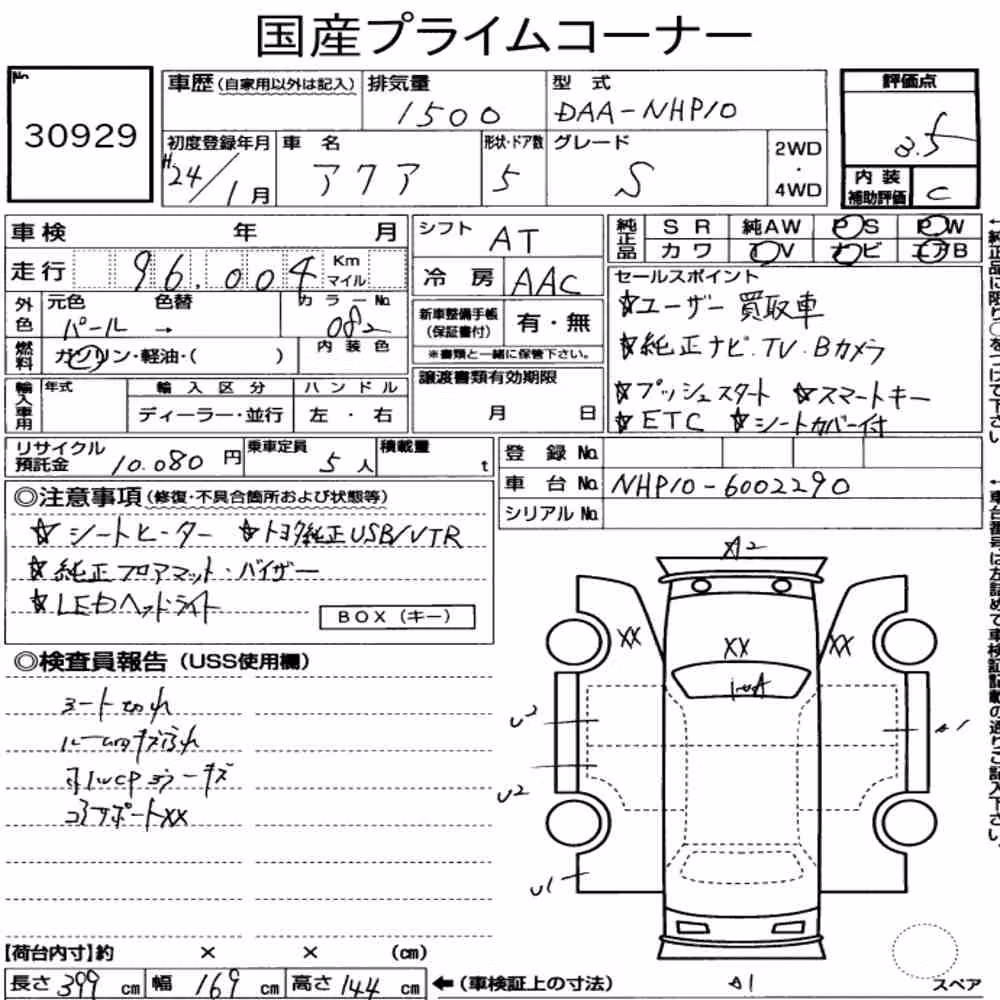 国産プライムコーナー
No.
30929
車歴(自家用以外は記入)
排気量
1500
型式
DAA-NHP10
評価点
3.5
内装補助評価
C
初度登録年月
H.24/1月
車名
アクア
形状・ドア数
5
グレード
S
2WD・4WD
車検 年 月
走行 96,004 Km マイル
シフト
AT
冷房
AAC
純正品
SR 純AW PS PW
カワ TV ナビ エアB
外色
元色 色替 カラーNo.
パール → 082
燃料
ガソリン・軽油・( )
内装色
新車整備手帳(保証書付)
有・無
※書類と一緒に保管下さい。
セールスポイント
☆ユーザー買取車
☆純正ナビ.TV.Bカメラ
☆プッシュスタート ☆スマートキー
☆ETC ☆シートカバー付
輸入車用
年式
輸入区分
ハンドル
ディーラー・並行
左・右
譲渡書類有効期限
月 日
リサイクル預託金 10.080円
乗車定員 5人
積載量 t
登録No.
車台No. NHP10-6002290
シリアルNo.
◎注意事項(修復・不具合箇所および状態等)
☆シートヒーター ☆トヨタ純正USB/VTR
☆純正フロアマット・バイザー
☆LEDヘッドライト
BOX(キー)
◎検査員報告(USS使用欄)
シート切れ
ルーム内キズ汚れ
コアサポートXX
A2
XX
XX
XX
U2
U2
U1
A1
A1
スペア
【荷台内寸】約 × × (cm)
長さ399cm 幅169cm 高さ144cm ←(車検証上の寸法)
←純正品に限り○をつけて下さい
←車台番号は左詰めで車検証記載の通りご記入下さい。